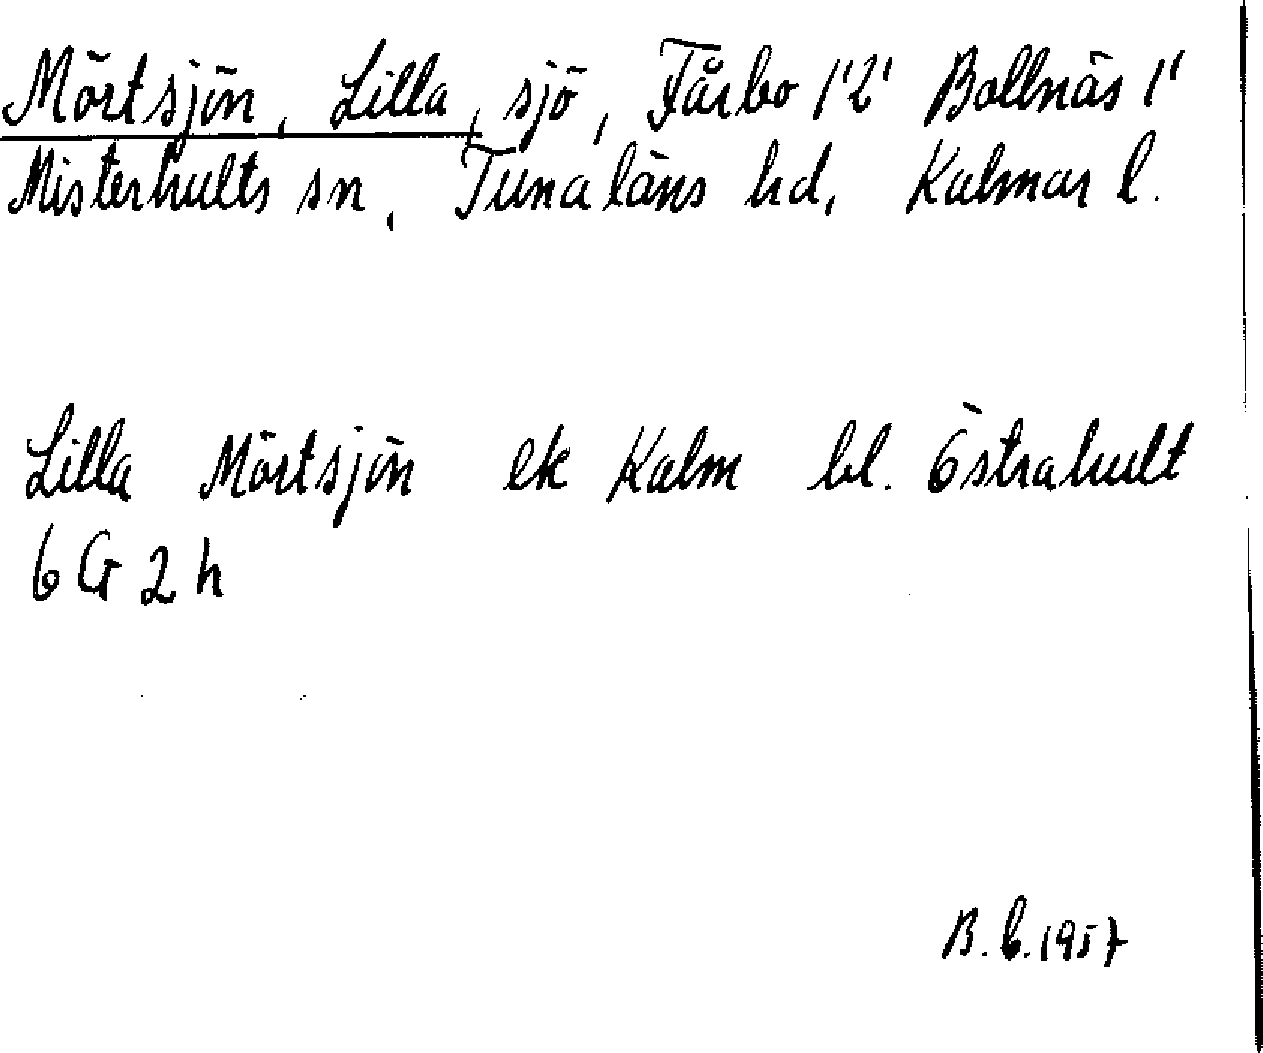 Mörtsjön, Lilla, sjö, Fårbo 1'2' Bollnäs 1'
Misterhults sn, Tunaläns hd, Kalmar l.
Lilla Mörtsjön ek Kalm bl. Östrahult
6 G 2 h
B. b. 1957